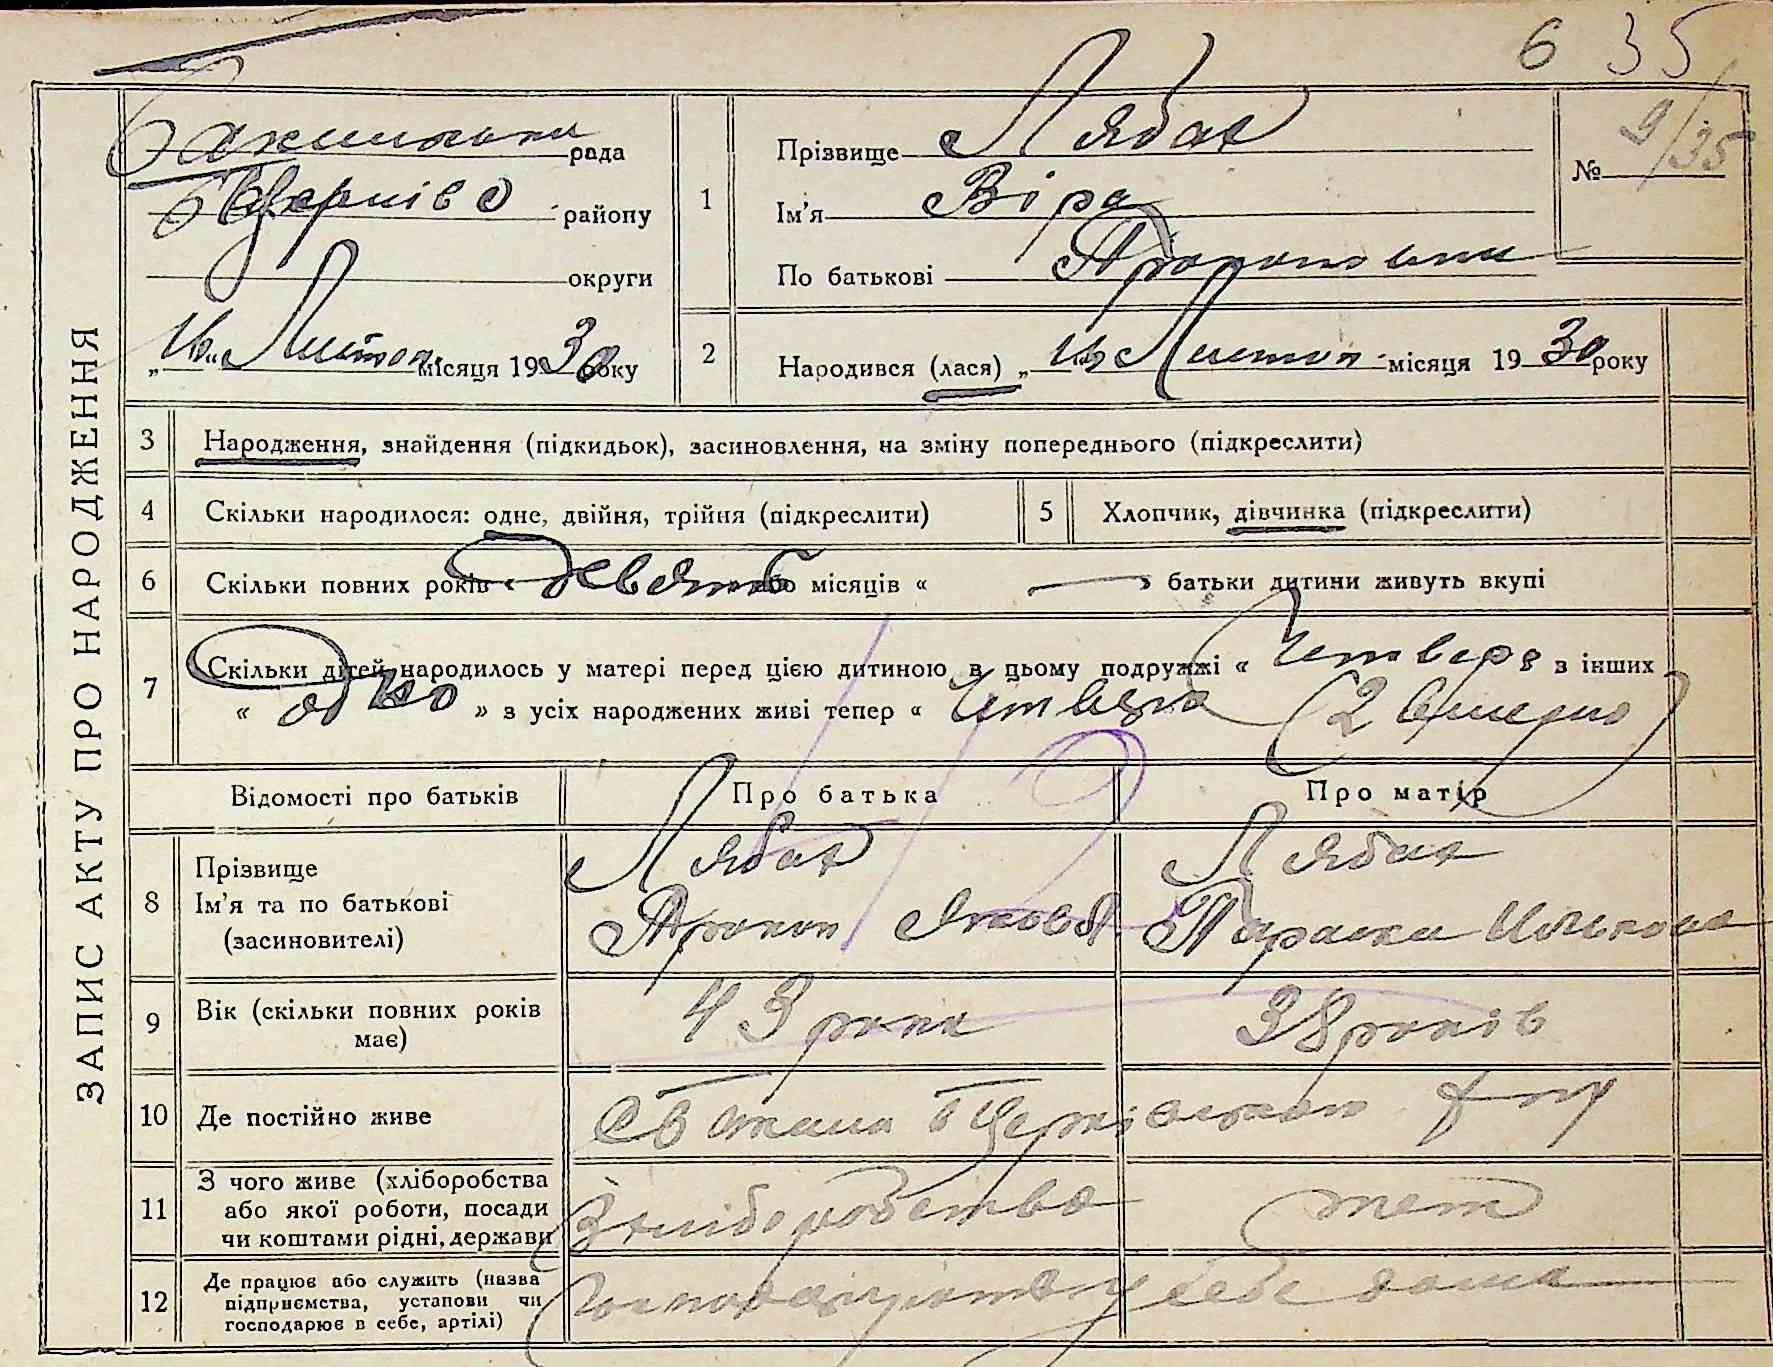 6 35
ЗАПИС АКТУ ПРО НАРОДЖЕННЯ
рада
району
округи
Листоп. місяця 1930 року
1
Прізвище Лябах
Ім'я Віра
По батькові Прокоповна
№ 9/35
2 Народився (лася) „ Листоп. місяця 1930 року
3 Народження, знайдення (підкидьок), засиновлення, на зміну попереднього (підкреслити)
4 Скільки народилося: одне, двійня, трійня (підкреслити)
5 Хлопчик, дівчинка (підкреслити)
6 Скільки повних років « девять або місяців « — » батьки дитини живуть вкупі
7 Скільки дітей народилось у матері перед цією дитиною в цьому подружжі « Четверо з інших
« одно » з усіх народжених живі тепер « (2 вмерло)
Відомості про батьків
Про батька
Про матір
8 Прізвище
Ім'я та по батькові
(засиновителі)
Лябах
Прокоп Яков
Лябах
Параска Илькова
9 Вік (скільки повних років
має)
43 роки
38 років
10 Де постійно живе
11 З чого живе (хліборобства
або якої роботи, посади
чи коштами рідні, держави
З хліборобства
теж
12 Де працює або служить (назва
підприємства, установи чи
господарює в себе, артілі)
у себе дома